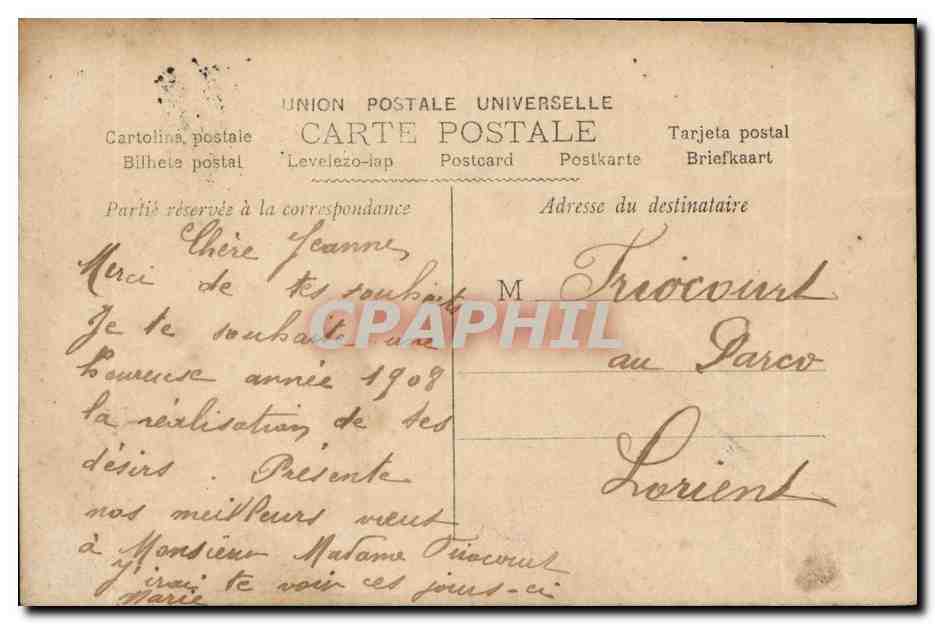 UNION POSTALE UNIVERSELLE
CARTE POSTALE
Cartolina postale
Tarjeta postal
Bilhete postal
Levelezö-lap
Postcard
Postkarte
Briefkaart
Partie réservée à la correspondance
Adresse du destinataire
Chère Jeanne,
Merci de tes souhaits
Je te souhaite une
heureuse année 1908
la réalisation de tes
désirs. Présente
nos meilleurs vœux
à Monsieur Madame Triocourt
J'irai te voir ces jours-ci
Marie
M Triocourt
au Parco
Lorient
CPAPHIL